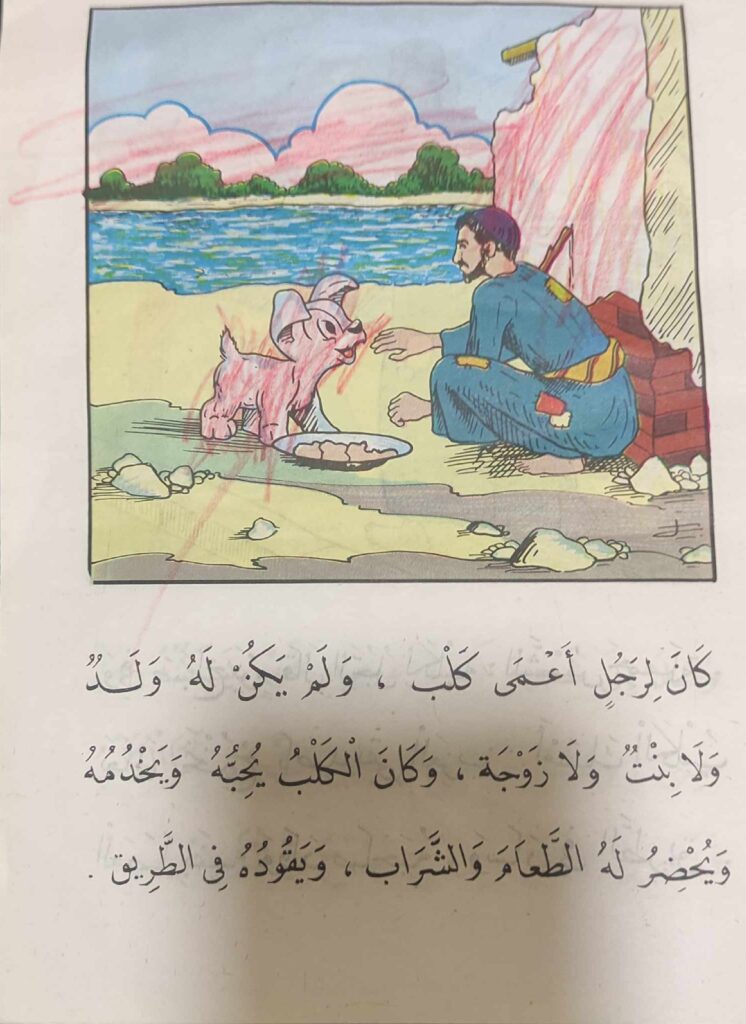 كَانَ لِرَجُلٍ أَعْمَى كَلْب ، وَلَمْ يَكُنْ لَهُ وَلَدٌ
وَلَا بِنْتٌ وَلَا زَوْجَة ، وَكَانَ الْكَلْبُ يُحِبُّهُ وَيَخْدُمُهُ
وَيُحْضِرُ لَهُ الطَّعَامَ وَالشَّرَاب ، وَيَقُودُهُ فِي الطَّرِيق .